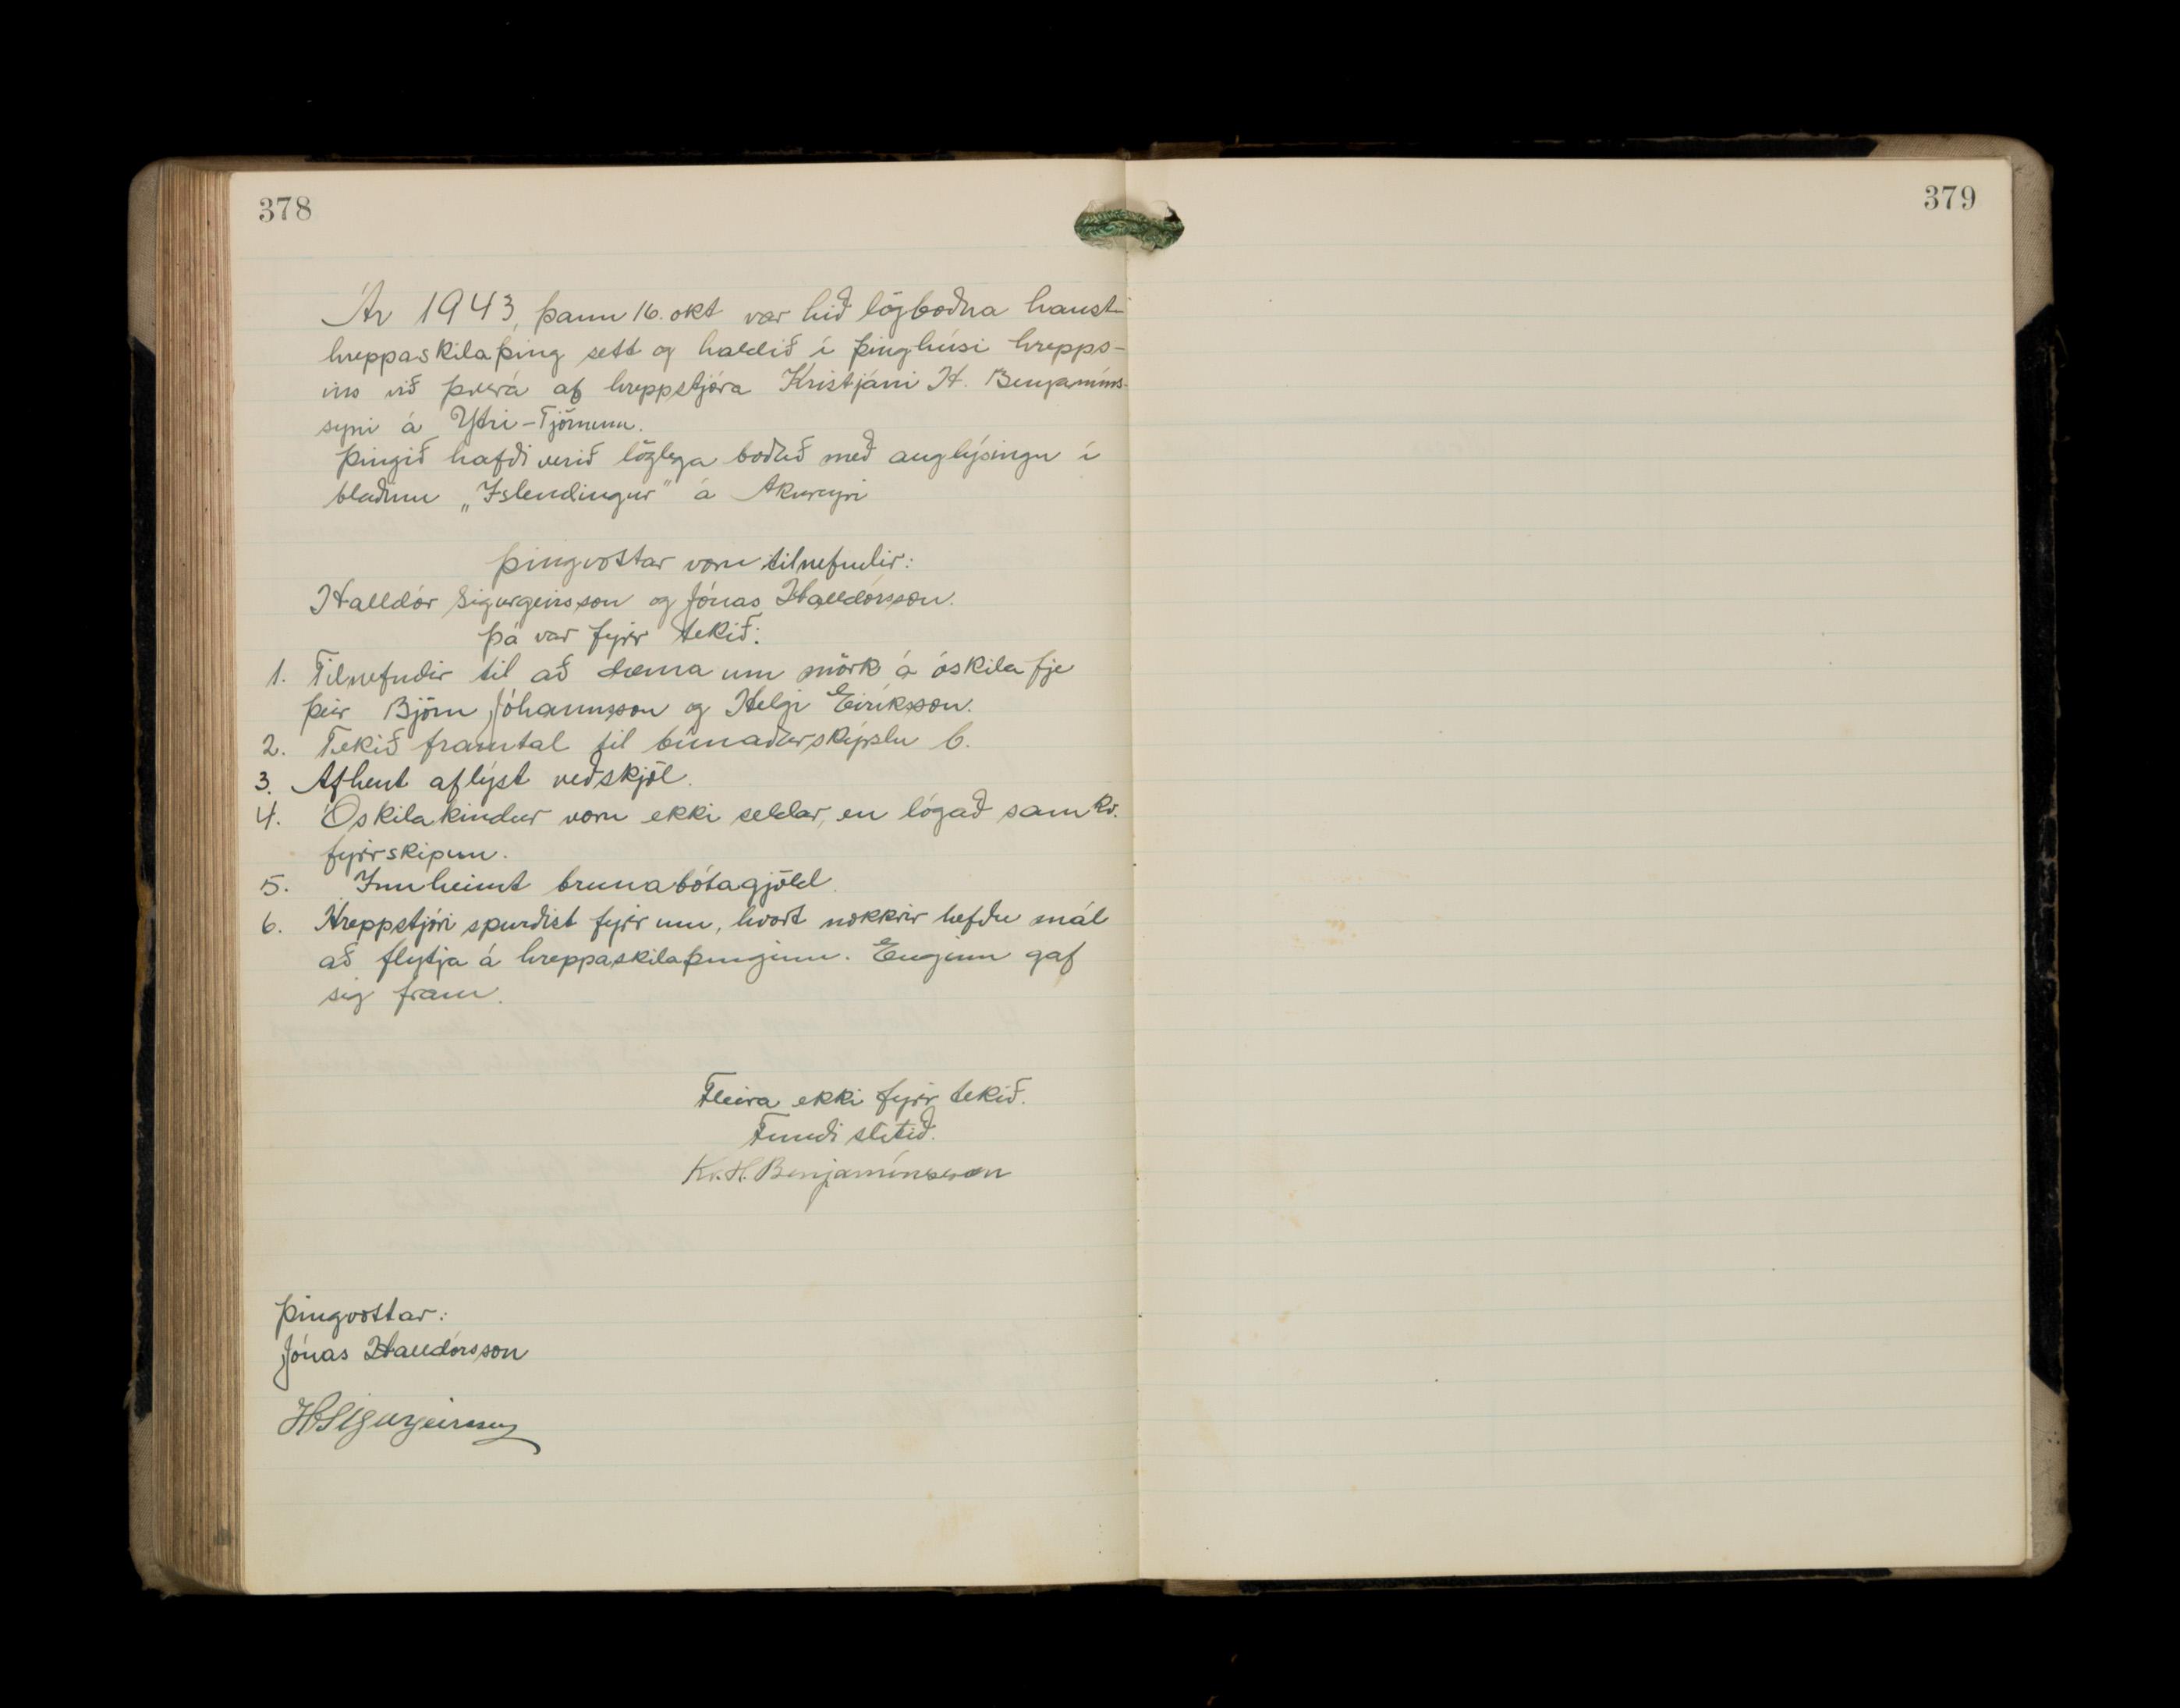 378
Ár 1943, þann 16. okt var hið lögboðna haust-
hreppaskilaþing sett og haldið í þinghúsi hrepps-
ins við þverá af hreppstjóra Kristjáni H. Benjamíns-
syni á Ytri-Tjörnum.
Þingið hafði verið löglega boðað með auglýsingu í
blaðinu „Islendingur" á Akureyri
Þingvottar voru tilnefndir:
Halldór Sigurgeirsson og Jónas Halldórsson.
Þá var fyrir tekið:
1. Tilnefndir til að dæma um mörk á óskila fje
þeir Björn Jóhannsson og Helgi Eiríksson.
2. Tekið framtal til búnaðarskýrslu b.
3. Afhent aflýst veðskjöl.
4. Óskilakindur voru ekki seldar, en lógað samkv.
fyrirskipun.
5. Innheimt brunabótagjöld.
6. Hreppstjóri spurðist fyrir um, hvort nokkrir hefðu mál
að flytja á hreppaskilaþinginu. Enginn gaf
sig fram.
Fleira ekki fyrir tekið.
Fundi slitið.
Kr. H. Benjamínsson
Þingvottar:
Jónas Halldórsson
H Sigurgeirsson
379